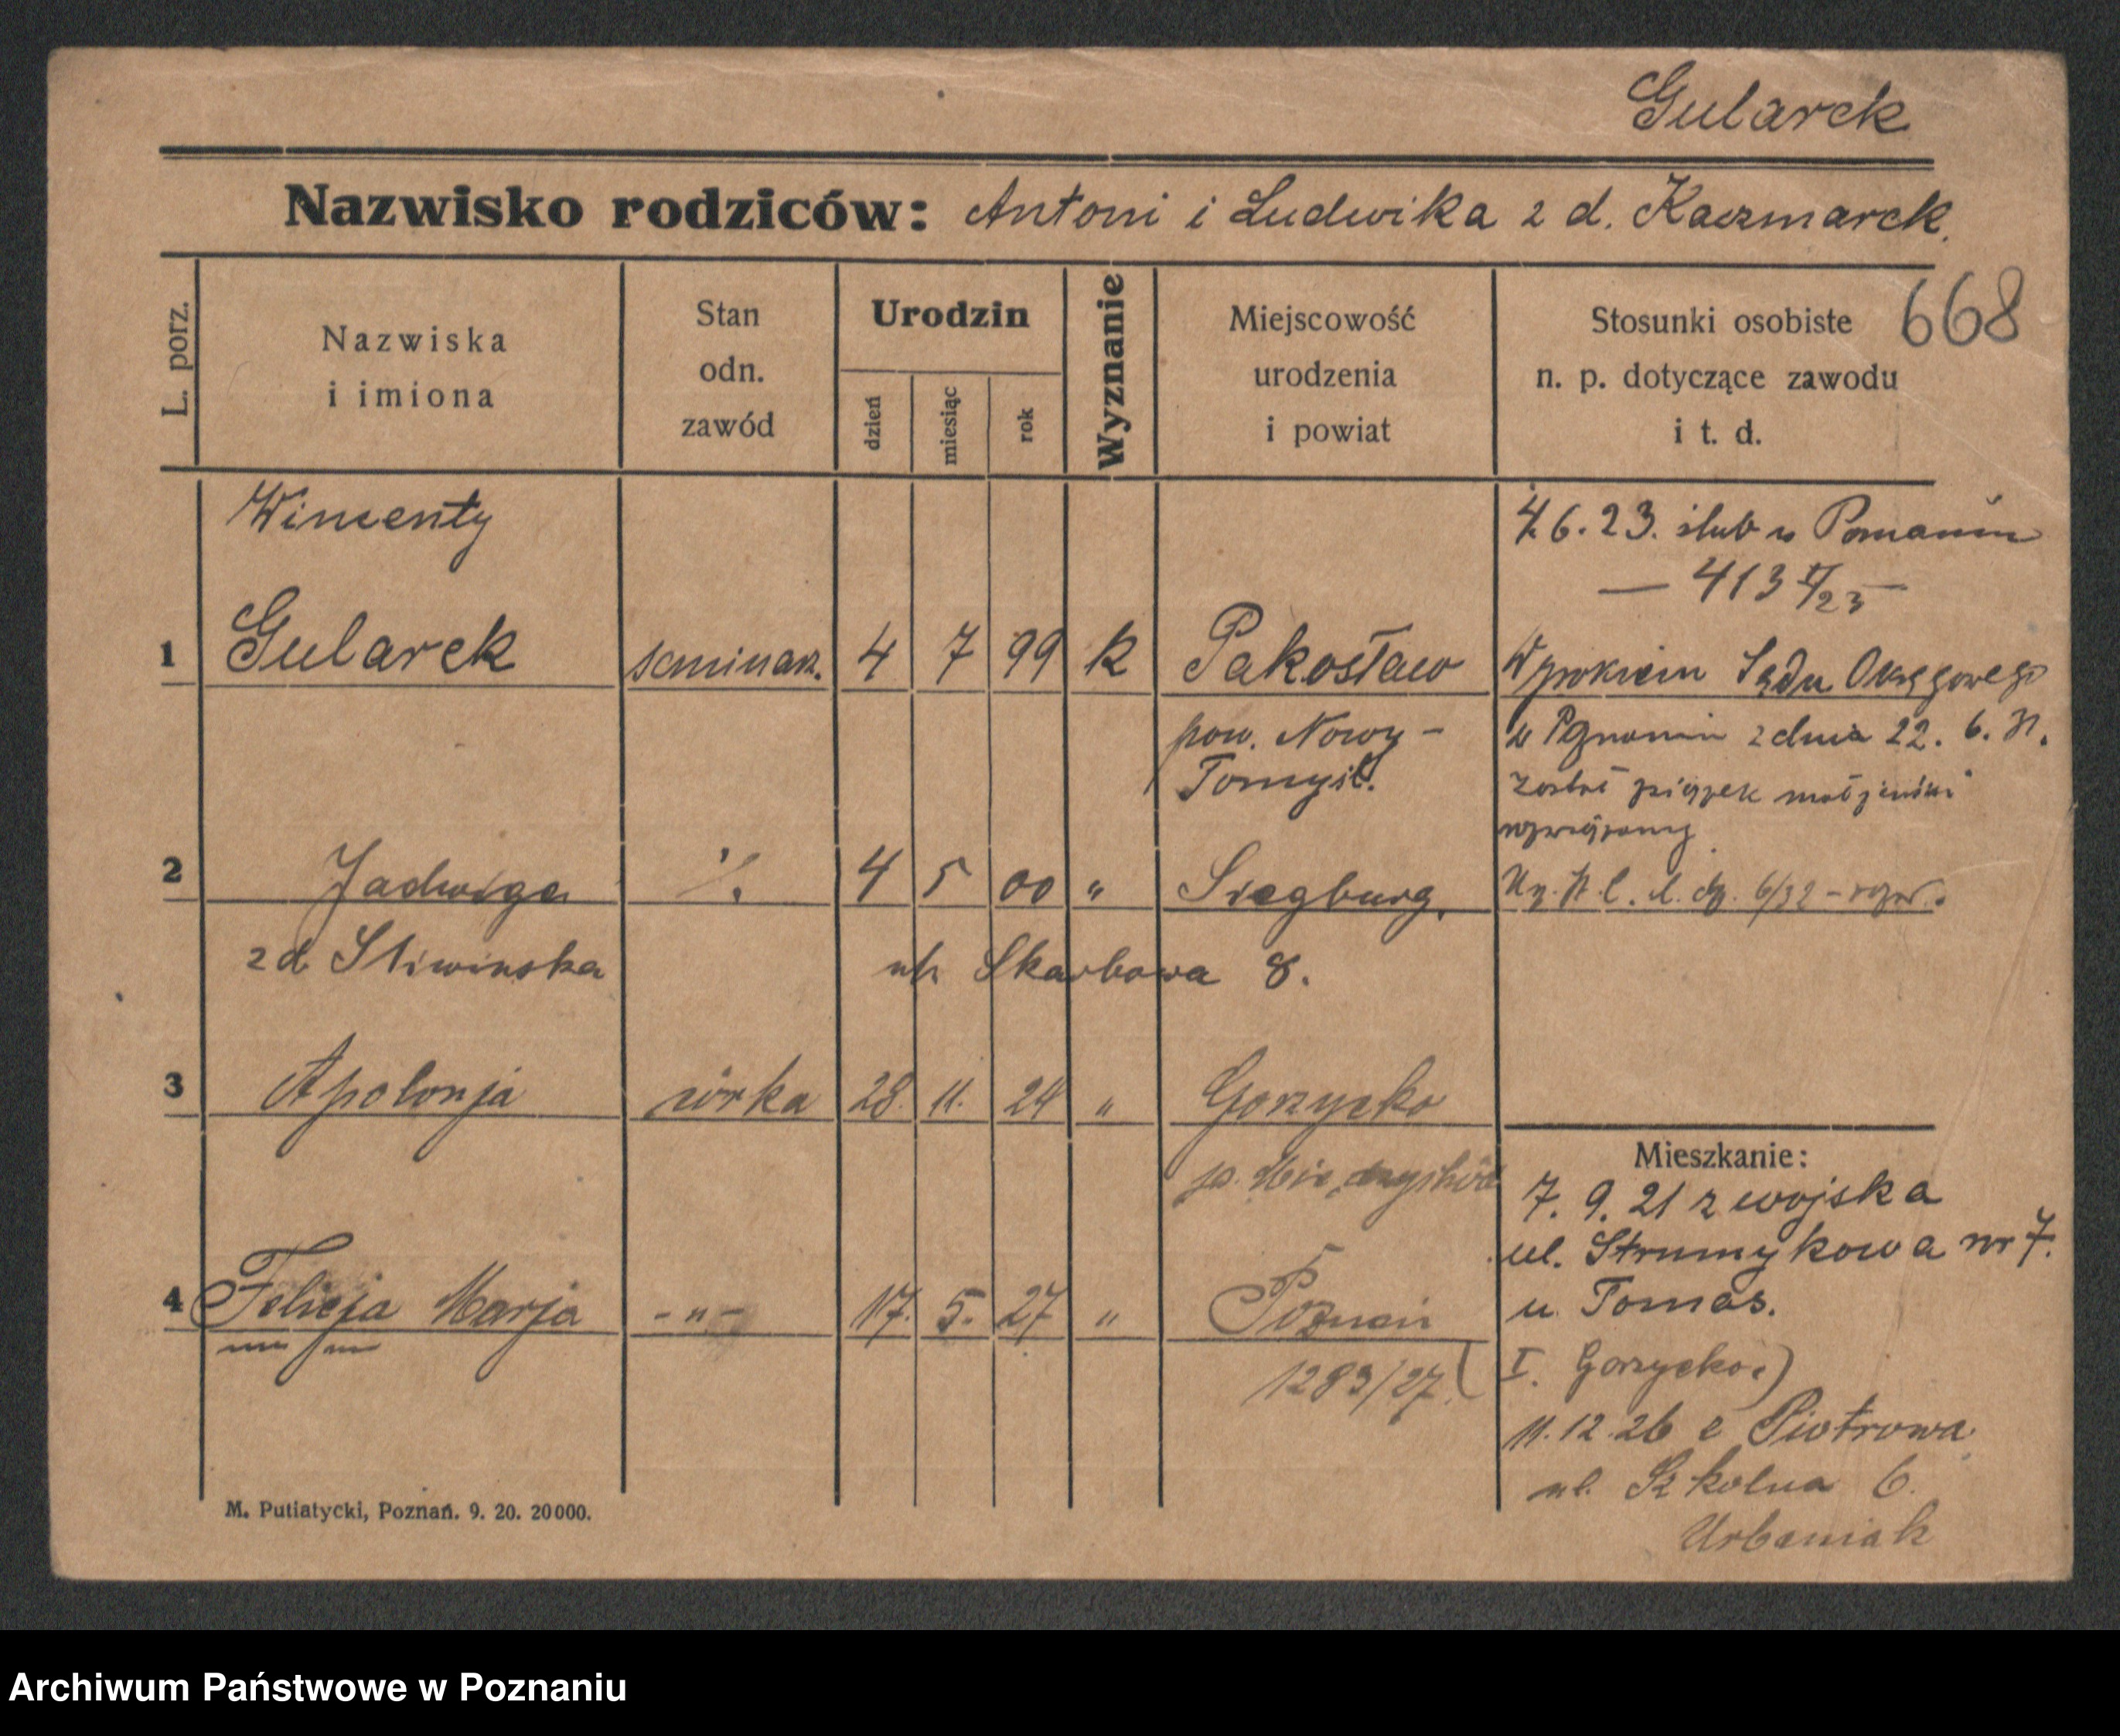 Gularek
Nazwisko rodziców: Antoni i Ludwika z d. Kaczmarek.
668
L. porz.
Nazwiska
i imiona
Stan
odn.
zawód
Urodzin
dzień
miesiąc
rok
Wyznanie
Miejscowość
urodzenia
i powiat
Stosunki osobiste
n. p. dotyczące zawodu
i t. d.
Wincenty
1 Gularek seminarz. 4 7 99 k Pakosław
pow. Nowy-
Tomyśl.
4.6.23. ślub w Poznaniu
— 413 /23 —
Wyrokiem Sądu Okręgowego
w Poznaniu z dnia 22. 6. 31.
został związek małżeński
rozwiązany
6/32
2 Jadwiga ./. 4 5 00 " Siegburg.
z d. Sliwinska ul. Skarbowa 8.
3 Apolonja córka 28. 11. 24 " Gorzycko
p. Międzychód
4 Felicja Marja -"- 17. 5. 27 " Poznań
1283/27.
Mieszkanie:
7. 9. 21 z wojska
ul. Strumykowa nr 7.
u Tomas.
I. Gorzycko)
11.12.26 z Piotrowa
ul. Szkolna 6.
Urbaniak
M. Putiatycki, Poznań. 9. 20. 20000.
Archiwum Państwowe w Poznaniu